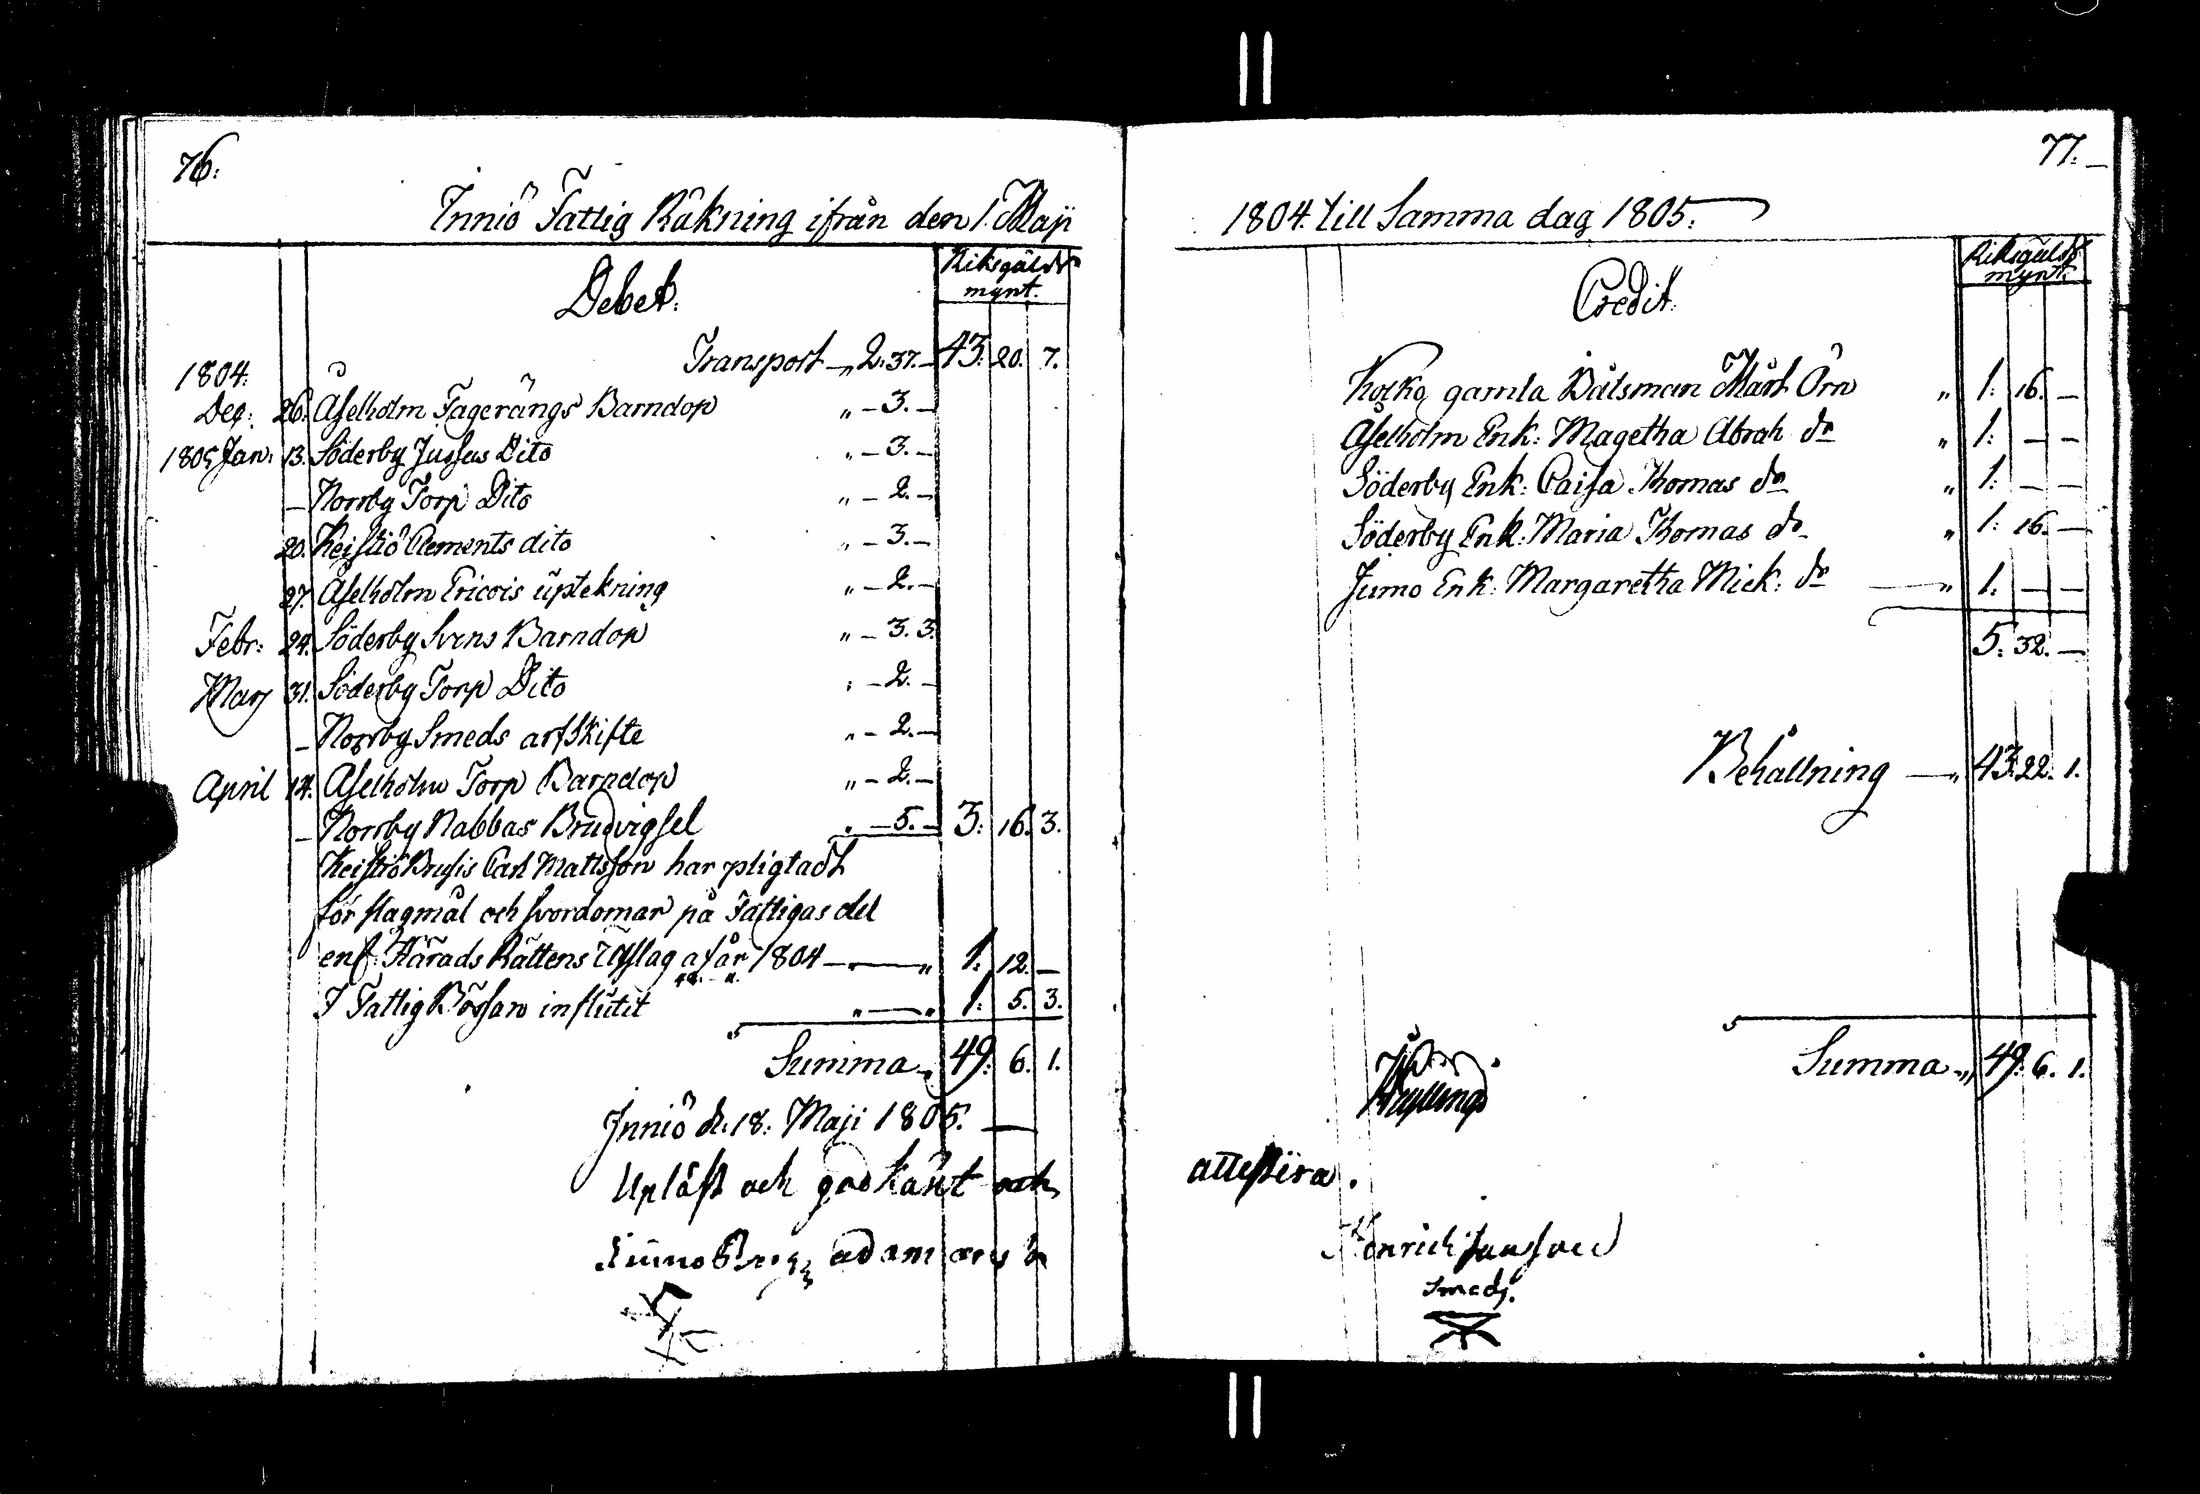 76.
Inniö Fattig Räkning ifrån den 1. Maji
Debet.
Riksgälds
mynt.
Transport „ 2. 37. – 43. 20. 7.
1804.
Dec: 26. Åselholm Fagerängs Barndop „ – 3. –
1805 Jan: 13. Söderby Jussus Dito „ – 3. –
– Norrby Torp Dito „ – 2. –
20. Keistiö Clements dito „ – 3. –
27. Åselholm Ericois uptekning „ – 2. –
Febr: 24. Söderby Svens Barndop „ – 3. 3.
Mars 31. Söderby Torp Dito „ – 2. –
– Norrby Smeds arfskifte „ – 2. –
April 14. Åselholm Torp Barndop „ – 2. –
– Norrby Nabbas Brudvigsel „ – 5. – 3. 16. 3.
Keistiö Brusis Carl Mattsson har pligtadt
för slagmål och svordomar på Fattigas del
enl. Härads Rättens Utslag af år 1804 – „ 1. 12. –
I Fattig Bössan influtit „ – „ 1. 5. 3.
Summa „ 49. 6. 1.
Inniö d. 18. Maji 1805. –
Upläst och godkänt
adam
77.
1804. till Samma dag 1805.
Credit.
Riksgälds
mynt.
Kolko gamla Båtsman Mårt Örn „ 1. 16. –
Åselholm Enk: Magetha Abrah dr „ 1. – –
Söderby Enk: Caisa Thomas dr „ 1. – –
Söderby Enk: Maria Thomas dr „ 1. 16. –
Jumo Enk: Margaretha Mick: dr – „ 1. – –
5. 32. –
Behållning – „ 43. 22. 1.
Summa „ 49. 6. 1.
attestera.
Henrich Jansson
Smeds.